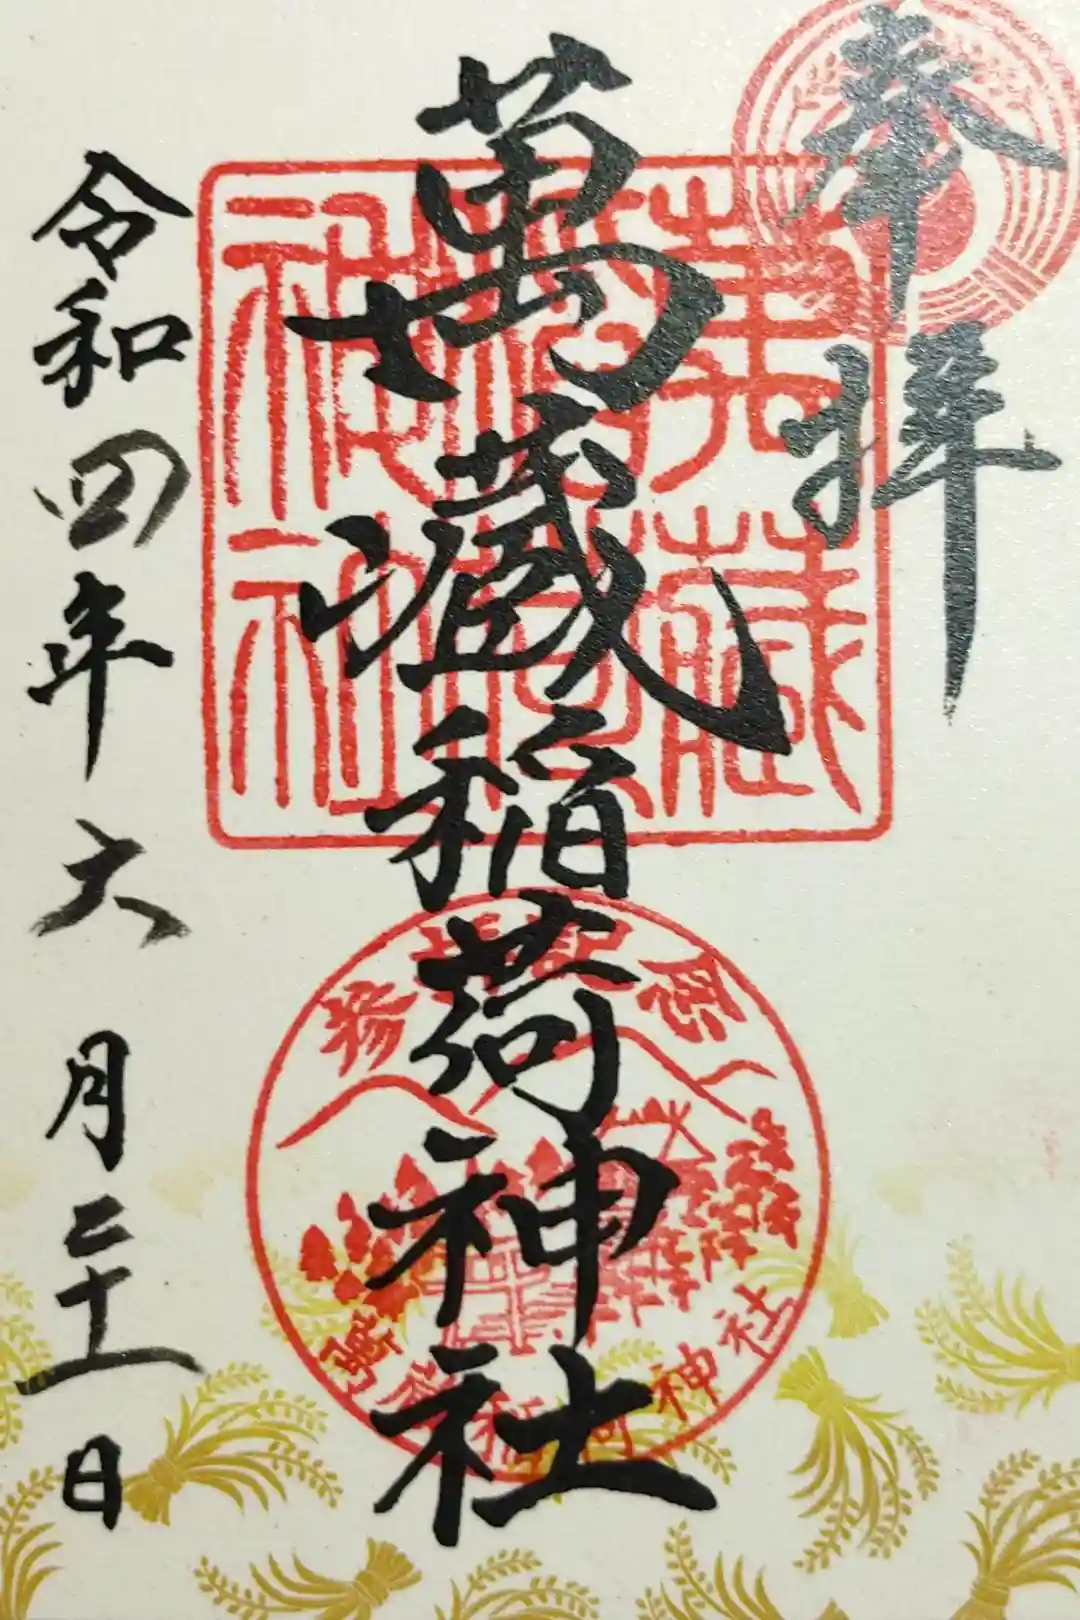 奉拝
萬蔵稲荷神社
令和四年六月二十一日
萬藏
稲荷
神社
參拝記念
萬蔵稲荷神社